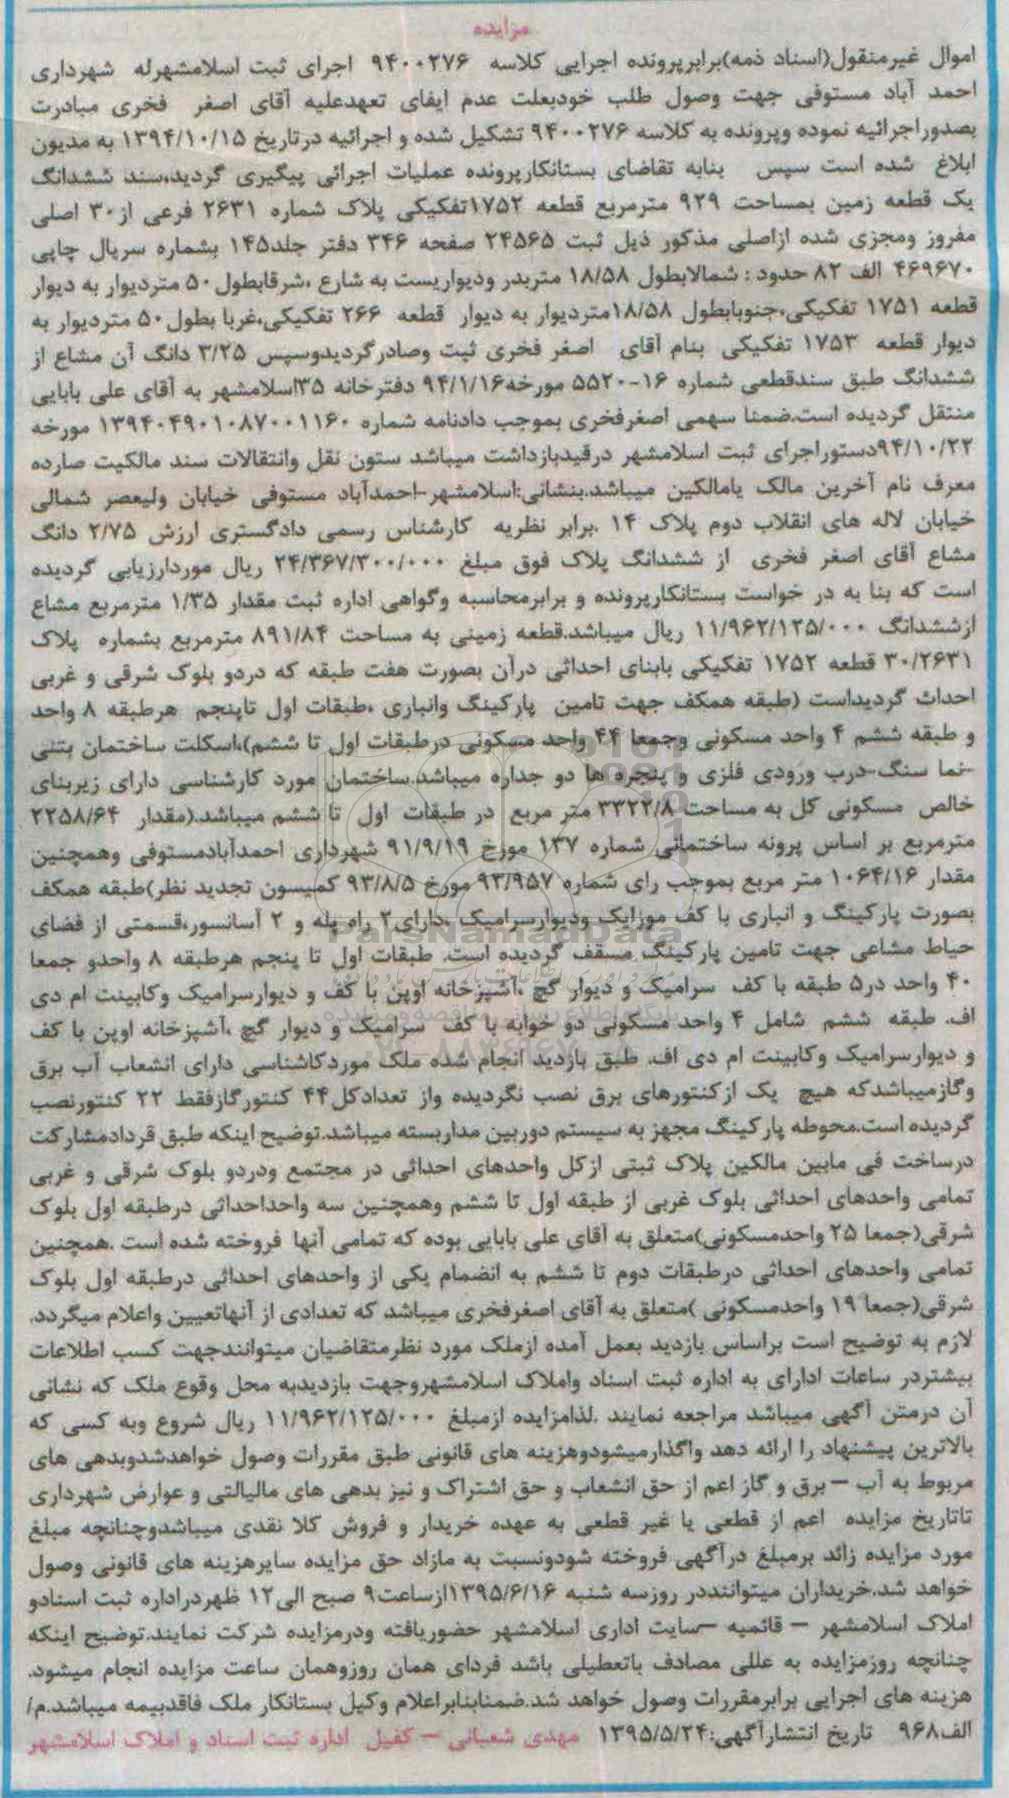 مزایده
اموال غیرمنقول(اسناد ذمه)برابرپرونده اجرایی کلاسه ۹۴۰۰۲۷۶ اجرای ثبت اسلامشهرله شهرداری
احمد آباد مستوفی جهت وصول طلب خودبعلت عدم ایفای تعهدعلیه آقای اصغر فخری مبادرت
بصدوراجرائیه نموده وپرونده به کلاسه ۹۴۰۰۲۷۶ تشکیل شده و اجرائیه درتاریخ ۱۳۹۴/۱۰/۱۵ به مدیون
ابلاغ شده است سپس بنابه تقاضای بستانکارپرونده عملیات اجرائی پیگیری گردید،سند ششدانگ
یک قطعه زمین بمساحت ۹۲۹ مترمربع قطعه ۱۷۵۲تفکیکی پلاک شماره ۲۶۳۱ فرعی از۳۰ اصلی
مفروز ومجزی شده ازاصلی مذکور ذیل ثبت ۲۴۵۶۵ صفحه ۳۴۶ دفتر جلد۱۴۵ بشماره سریال چاپی
۴۶۹۶۷۰ الف ۸۲ حدود : شمالابطول ۱۸/۵۸ متربدر ودیواریست به شارع ،شرقابطول۵۰ متردیوار به دیوار
قطعه ۱۷۵۱ تفکیکی،جنوبابطول ۱۸/۵۸متردیوار به دیوار قطعه ۲۶۶ تفکیکی،غربا بطول۵۰ متردیوار به
دیوار قطعه ۱۷۵۳ تفکیکی بنام آقای اصغر فخری ثبت وصادرگردیدوسپس ۳/۲۵ دانگ آن مشاع از
ششدانگ طبق سندقطعی شماره ۱۶-۵۵۲۰ مورخه۹۴/۱/۱۶ دفترخانه ۳۵اسلامشهر به آقای علی بابایی
منتقل گردیده است.ضمنا سهمی اصغرفخری بموجب دادنامه شماره ۱۳۹۴۰۴۹۰۱۰۸۷۰۰۱۱۶۰ مورخه
۹۴/۱۰/۲۲دستوراجرای ثبت اسلامشهر درقیدبازداشت میباشد ستون نقل وانتقالات سند مالکیت صارده
معرف نام آخرین مالک یامالکین میباشد.بنشانی:اسلامشهر-احمدآباد مستوفی خیابان ولیعصر شمالی
خیابان لاله های انقلاب دوم پلاک ۱۴ .برابر نظریه کارشناس رسمی دادگستری ارزش ۲/۷۵ دانگ
مشاع آقای اصغر فخری از ششدانگ پلاک فوق مبلغ ۲۴/۳۶۷/۳۰۰/۰۰۰ ریال موردارزیابی گردیده
است که بنا به در خواست بستانکارپرونده و برابرمحاسبه وگواهی اداره ثبت مقدار ۱/۳۵ مترمربع مشاع
ازششدانگ ۱۱/۹۶۲/۱۲۵/۰۰۰ ریال میباشد.قطعه زمینی به مساحت ۸۹۱/۸۴ مترمربع بشماره پلاک
۳۰/۲۶۳۱ قطعه ۱۷۵۲ تفکیکی بابنای احداثی درآن بصورت هفت طبقه که دردو بلوک شرقی و غربی
احداث گردیداست (طبقه همکف جهت تامین پارکینگ وانباری ،طبقات اول تاپنجم هرطبقه ۸ واحد
و طبقه ششم ۴ واحد مسکونی وجمعا ۴۴ واحد مسکونی درطبقات اول تا ششم)،اسکلت ساختمان بتنی
-نما سنگ-درب ورودی فلزی و پنجره ها دو جداره میباشد.ساختمان مورد کارشناسی دارای زیربنای
خالص مسکونی کل به مساحت ۳۳۲۲/۸ متر مربع در طبقات اول تا ششم میباشد.(مقدار ۲۲۵۸/۶۴
مترمربع بر اساس پرونه ساختمانی شماره ۱۳۷ مورخ ۹۱/۹/۱۹ شهرداری احمدآبادمستوفی وهمچنین
مقدار ۱۰۶۴/۱۶ متر مربع بموجب رای شماره ۹۳/۹۵۷ مورخ ۹۳/۸/۵ کمیسون تجدید نظر)طبقه همکف
بصورت پارکینگ و انباری با کف موزایک ودیوارسرامیک ،دارای۲ راه پله و ۲ آسانسور،قسمتی از فضای
حیاط مشاعی جهت تامین پارکینگ مسقف گردیده است. طبقات اول تا پنجم هرطبقه ۸ واحدو جمعا
۴۰ واحد در۵ طبقه با کف سرامیک و دیوار گچ ،آشپزخانه اوپن با کف و دیوارسرامیک وکابینت ام دی
اف. طبقه ششم شامل ۴ واحد مسکونی دو خوابه با کف سرامیک و دیوار گچ ،آشپزخانه اوپن با کف
و دیوارسرامیک وکابینت ام دی اف. طبق بازدید انجام شده ملک موردکاشناسی دارای انشعاب آب برق
وگازمیباشدکه هیچ یک ازکنتورهای برق نصب نگردیده واز تعدادکل۴۴ کنتورگازفقط ۲۲ کنتورنصب
گردیده است.محوطه پارکینگ مجهز به سیستم دوربین مداربسته میباشد.توضیح اینکه طبق قردادمشارکت
درساخت فی مابین مالکین پلاک ثبتی ازکل واحدهای احداثی در مجتمع ودردو بلوک شرقی و غربی
تمامی واحدهای احداثی بلوک غربی از طبقه اول تا ششم وهمچنین سه واحداحداثی درطبقه اول بلوک
شرقی(جمعا ۲۵ واحدمسکونی)متعلق به آقای علی بابایی بوده که تمامی آنها فروخته شده است .همچنین
تمامی واحدهای احداثی درطبقات دوم تا ششم به انضمام یکی از واحدهای احداثی درطبقه اول بلوک
شرقی(جمعا ۱۹ واحدمسکونی )متعلق به آقای اصغرفخری میباشد که تعدادی از آنهاتعیین واعلام میگردد.
لازم به توضیح است براساس بازدید بعمل آمده ازملک مورد نظرمتقاضیان میتوانندجهت کسب اطلاعات
بیشتردر ساعات ادارای به اداره ثبت اسناد واملاک اسلامشهروجهت بازدیدبه محل وقوع ملک که نشانی
آن درمتن آگهی میباشد مراجعه نمایند .لذامزایده ازمبلغ ۱۱/۹۶۲/۱۲۵/۰۰۰ ریال شروع وبه کسی که
بالاترین پیشنهاد را ارائه دهد واگذارمیشودوهزینه های قانونی طبق مقررات وصول خواهدشدوبدهی های
مربوط به آب – برق و گاز اعم از حق انشعاب و حق اشتراک و نیز بدهی های مالیالتی و عوارض شهرداری
تاتاریخ مزایده اعم از قطعی یا غیر قطعی به عهده خریدار و فروش کلا نقدی میباشدوچنانچه مبلغ
مورد مزایده زائد برمبلغ درآگهی فروخته شودونسبت به مازاد حق مزایده سایرهزینه های قانونی وصول
خواهد شد.خریداران میتواننددر روزسه شنبه ۱۳۹۵/۶/۱۶ازساعت۹ صبح الی۱۲ ظهردراداره ثبت اسنادو
املاک اسلامشهر – قائمیه –سایت اداری اسلامشهر حضوریافته ودرمزایده شرکت نمایند.توضیح اینکه
چنانچه روزمزایده به عللی مصادف باتعطیلی باشد فردای همان روزوهمان ساعت مزایده انجام میشود.
هزینه های اجرایی برابرمقررات وصول خواهد شد.ضمنابنابراعلام وکیل بستانکار ملک فاقدبیمه میباشد.م/
الف۹۶۸ تاریخ انتشارآگهی:۱۳۹۵/۵/۲۴ مهدی شعبانی – کفیل اداره ثبت اسناد و املاک اسلامشهر
ParsNamadData